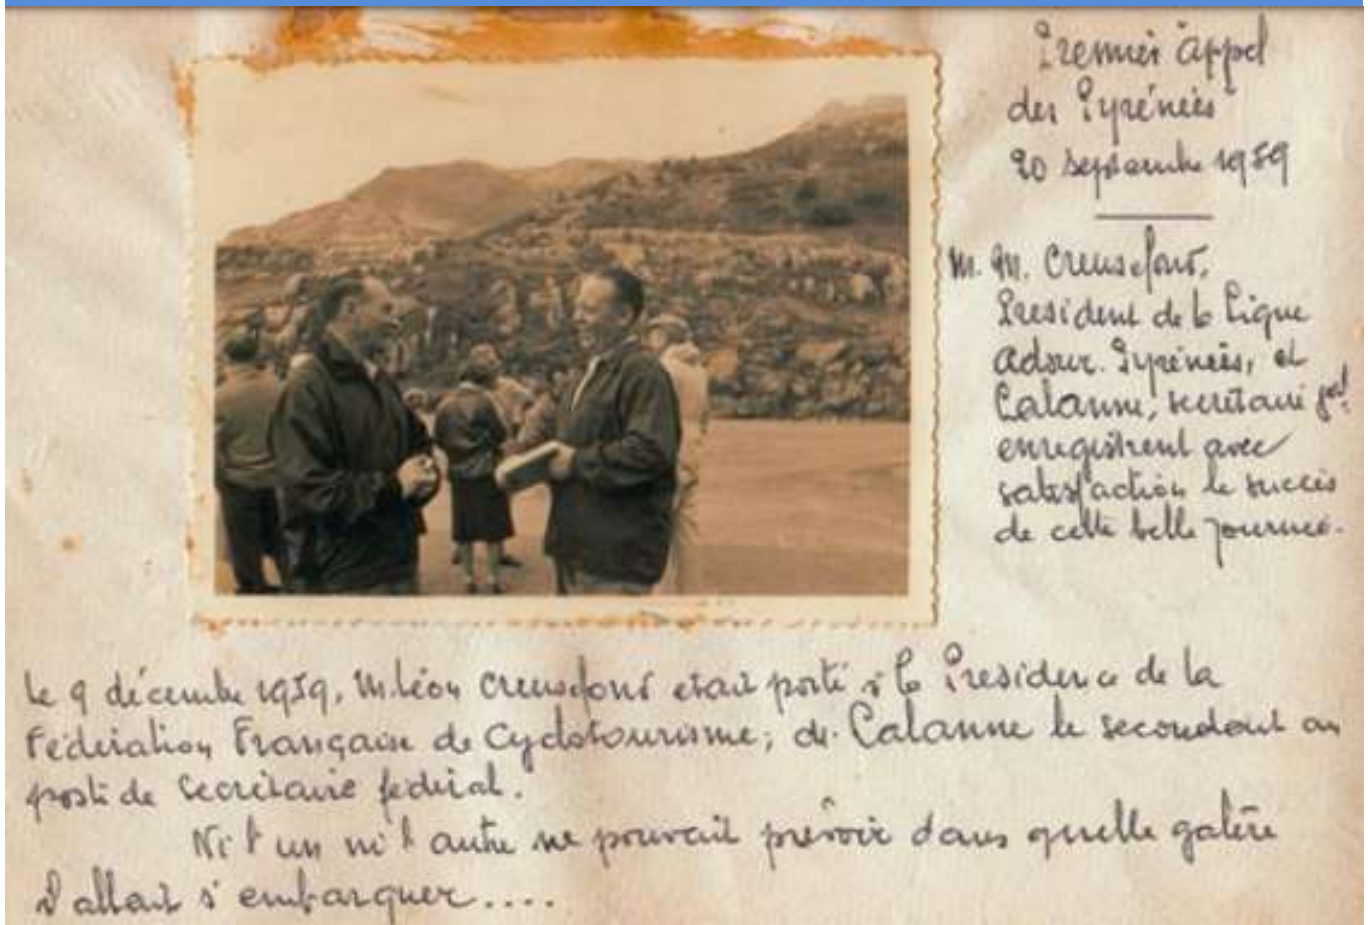 Premier appel
des Pyrénées
20 septembre 1959
M. M. Creusefond,
Président de la Ligue
Adour. Pyrénées, et
Calanne, secrétaire gal
enregistrent avec
satisfaction le succès
de cette belle journée.
le 9 décembre 1959, M. Léon Creusefond était porté à la Présidence de la
Fédération Française de Cyclotourisme; de Calanne le secondant au
poste de Secrétaire fédéral.
Ni l'un ni l'autre ne pouvait prévoir dans quelle galère
il allait s'embarquer....